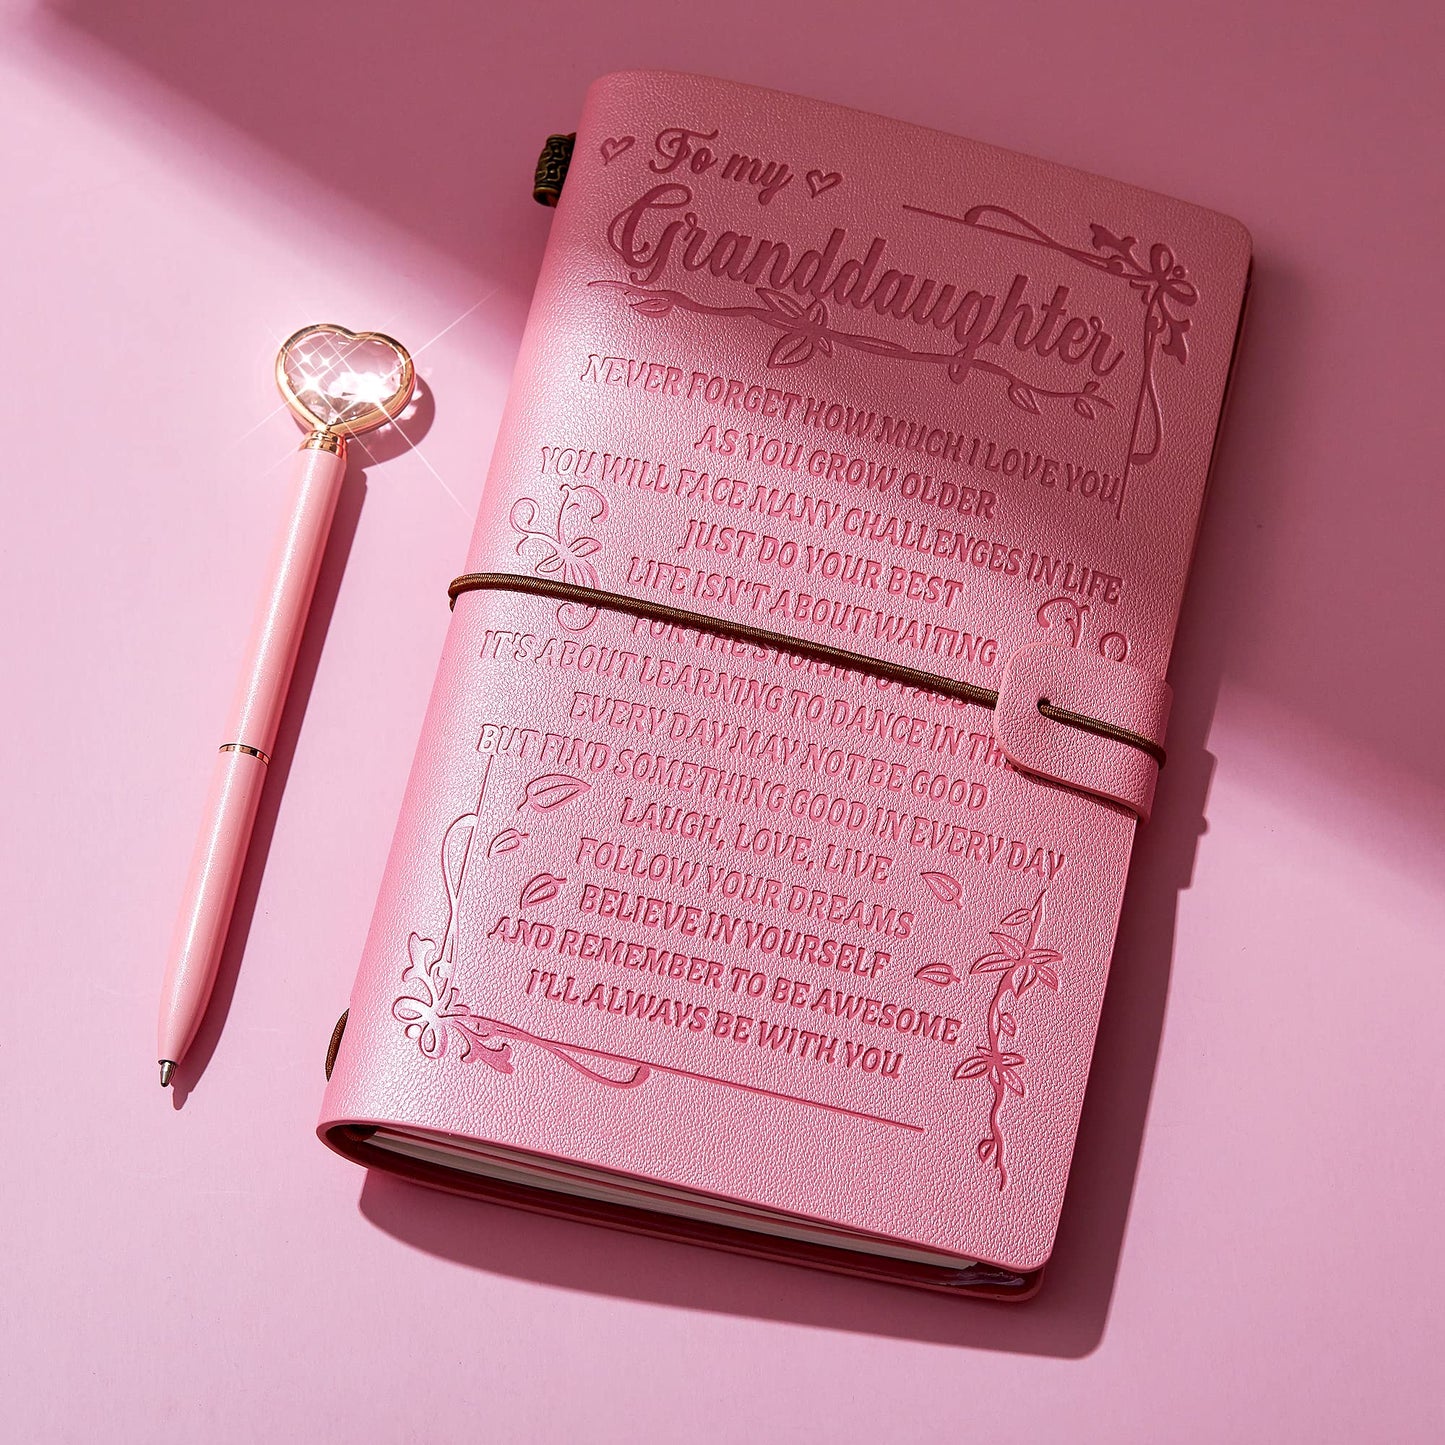 To my
Granddaughter
NEVER FORGET HOW MUCH I LOVE YOU
AS YOU GROW OLDER
YOU WILL FACE MANY CHALLENGES IN LIFE
JUST DO YOUR BEST
LIFE ISN'T ABOUT WAITING
FOR THE
IT'S ABOUT LEARNING TO DANCE IN
EVERY DAY MAY NOT BE GOOD
BUT FIND SOMETHING GOOD IN EVERY DAY
LAUGH, LOVE, LIVE
FOLLOW YOUR DREAMS
BELIEVE IN YOURSELF
AND REMEMBER TO BE AWESOME
I'LL ALWAYS BE WITH YOU